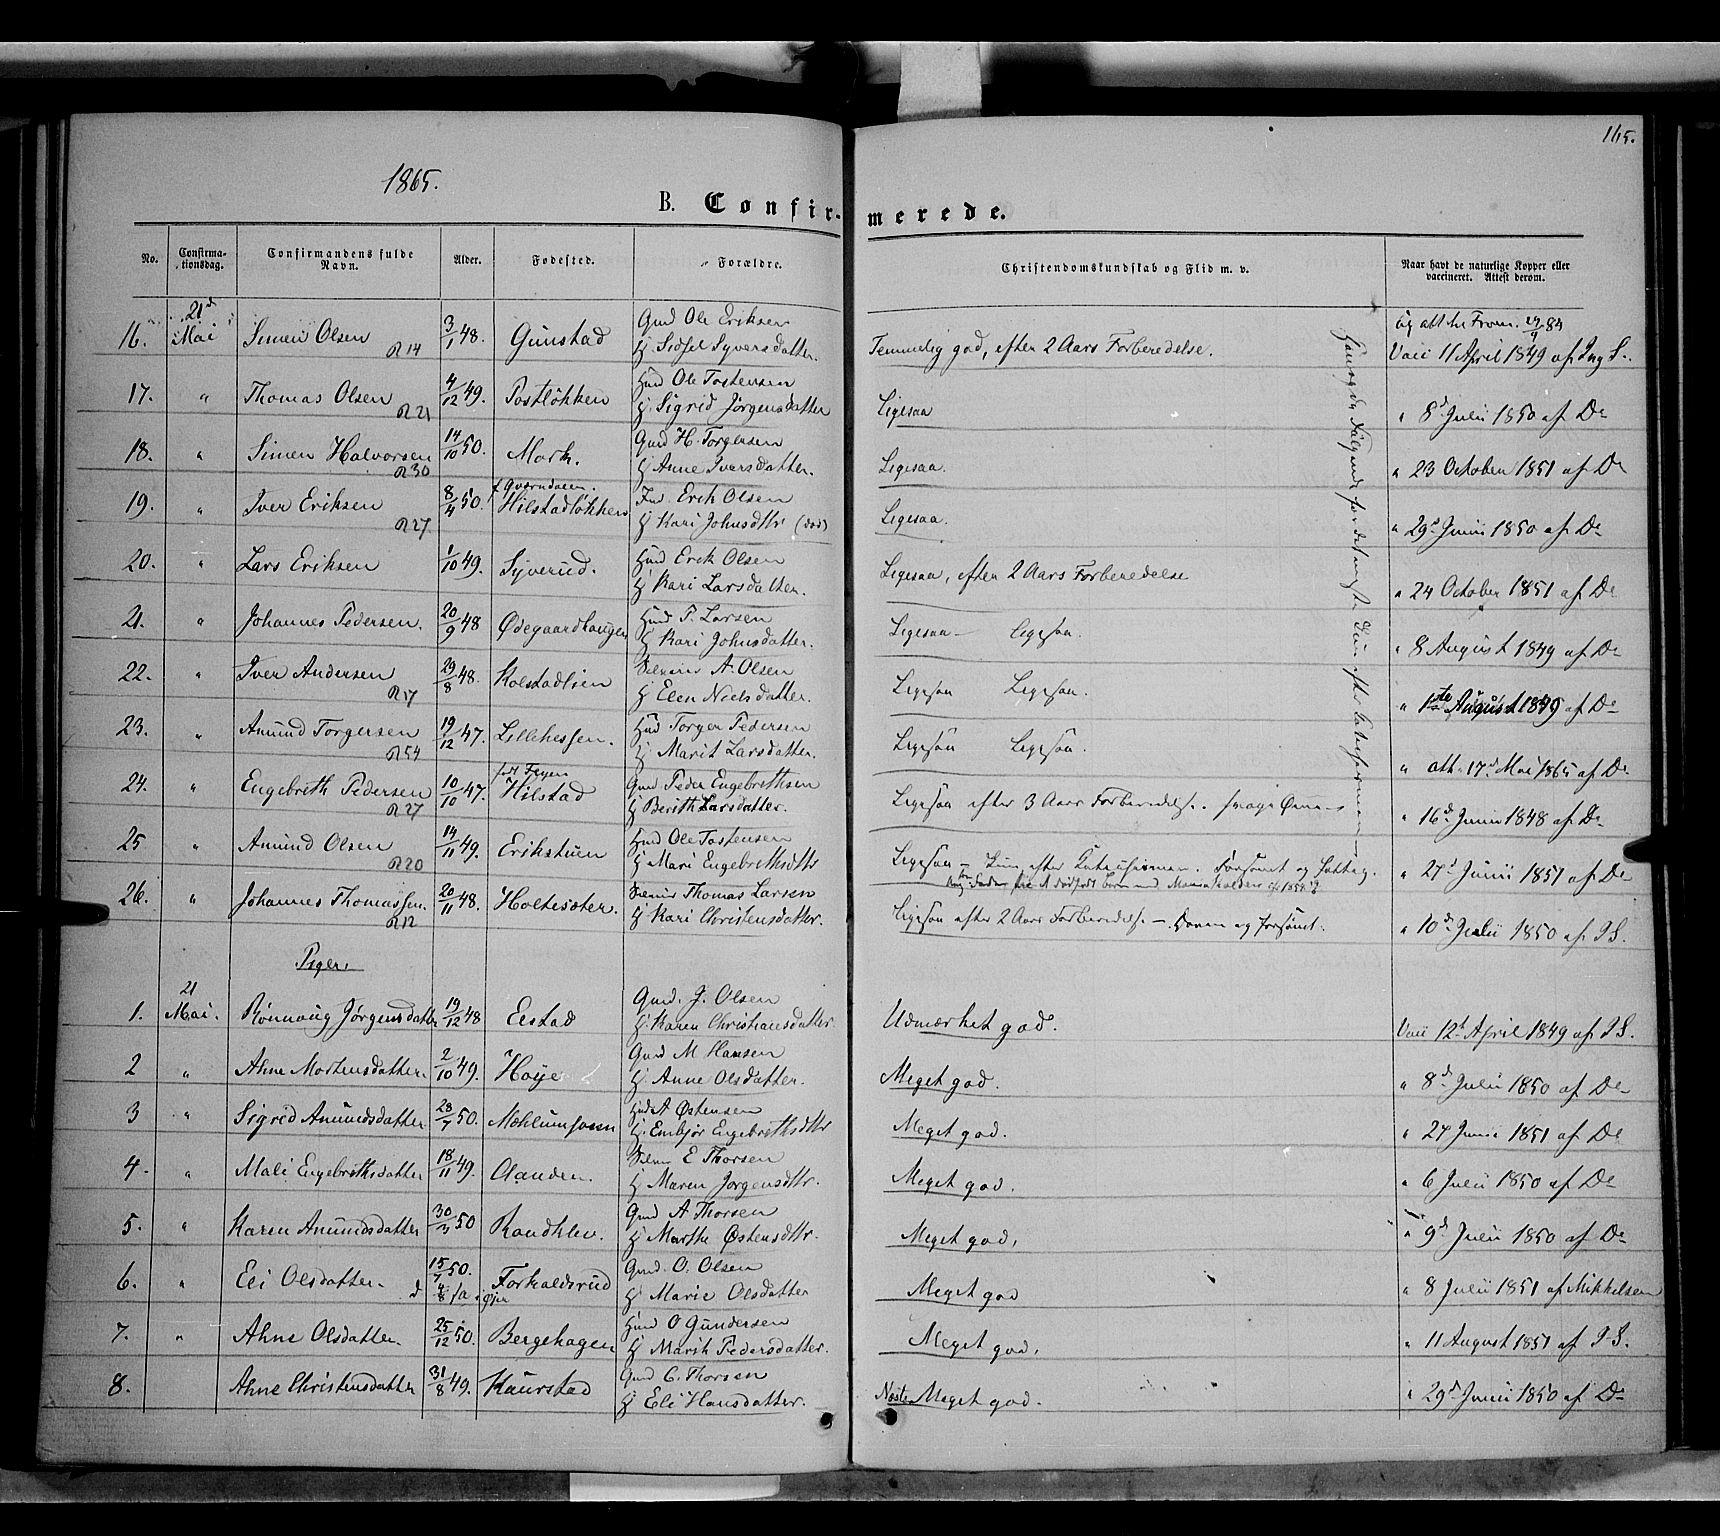 165.
1865.
B. Confirmerede.
No. Confirmationsdag. Confirmandens fulde Navn. Alder. Fødested. Forældre. Christendomskundskab og Flid m. v. Naar havt de naturlige Kopper eller vaccineret. Attest derom.
16. 21d Mai Simen Olsen R14 3/1 48. Gunstad Gmd Ole Eriksen
H Sidsel Syversdatter. Temmelig god, efter 2 Aars Forberedelse. Vaci 11 April 1849 af Ing S.
17. " Thomas Olsen R21 4/12 49. Postløkken Hmd Ole Tostensen
H Sigrid Jørgensdatter Ligesaa " 8d Julii 1850 af Do
18. " Simen Halvorsen R30 14/10 50. Mork. Gmd H. Torgersen
H Anne Iversdatter. Ligesaa. " 23 October 1851 af Do
19. " Iver Eriksen R27 8/4 50. f Qværndalen. Hilstadløkken Ind. Erik Olsen
H Kari Johnsdttr (død) Ligesaa. " 29d Junii 1850 af Do
20. " Lars Eriksen 1/10 49. Syverud. Hmd Erik Olsen
H Kari Larsdatter. Ligesaa, efter 2 Aars Forberedelse " 24 October 1851 af Do
21. " Johannes Pedersen. 20/9 48 Ødegaardhaugen Hmd P. Larsen
H Kari Johnsdatter. Ligesaa - ligesaa. " 8 August 1849 af Do
22. " Iver Andersen R17 29/8 48. Kolstadlien A. Olsen
H Elen Nielsdatter. Ligesaa Ligesaa. " 1ste August 1849 af Do
23. " Amund Torgersen R54 19/12 47. Lillehessen. Hmd Torger Pedersen
H Marit Larsdatter. Ligesaa Ligesaa. " att. 17d Mai 1865 af Do
24. " Engebreth Pedersen R27 10/10 47. Hilstad Gmd Peder Engebrethsen
H Berith Larsdatter. Ligesaa efter 3 Aars Forberedelse. svage Øine " 16d Junii 1848 af Do
25 " Amund Olsen R20 14/11 49. Erikstuen Hmd Ole Tostensen
H Mari Engebrethsdttr Ligesaa - efter Forsømt og " 27d Junii 1851 af Do
26. " Johannes Thomassen. R12 20/11 48. Holtesæter. Thomas Larsen
H Kari Christensdatter. Ligesaa efter 2 Aars Forberedelse - Doven og forsømt. " 10d Julii 1850 af I S.
Piger.
1. 21 Mai. Rønnaug Jørgensdatter 19/12 48 Eestad Gmd. J. Olsen
H. Karen Christiansdatter Udmærket god. Vaci 12t April 1849 af I S.
2 " Ahne Mortensdatter. 2/10 49. Høye Gmd M Hansen
H Anne Olsdatter. Meget god. " 8d Julii 1850 af Do
3 " Sigrid Amundsdatter 28/7 50. Mæhlumsveen Hmd A Østensen
H. Embjør Engebrethsdttr Meget god. " 27 Junii 1851 af Do
4. " Mali Engebrethsdatter 18/11 49. Olanden. E Thorsen
H Maren Jørgensdttr. Meget god. " 6 Julii 1850 af Do
5. " Karen Amundsdatter 30/3 50 Randklev. Gmd A Thorsen
H Marthe Østensdttr. Meget god, " 9d Julii 1850 af Do
6. " Eli Olsdatter 15/7 50. Forkaldsrud Gmd. O. Olsen
H Marie Olsdatter Meget god " 8 Julii 1851 af Mikkelsen
7. " Ahne Olsdatter. 25/12 50. Bergehagen Hmd O Gundersen
H Marit Pedersdatter. Meget god, " 11 August 1851 af I S.
8. Ahne Christensdatter 31/8 49. Kaurstad Gmd C. Thorsen
H Eli Hansdatter. Næsten Meget god. " 29d Junii 1850 af Do